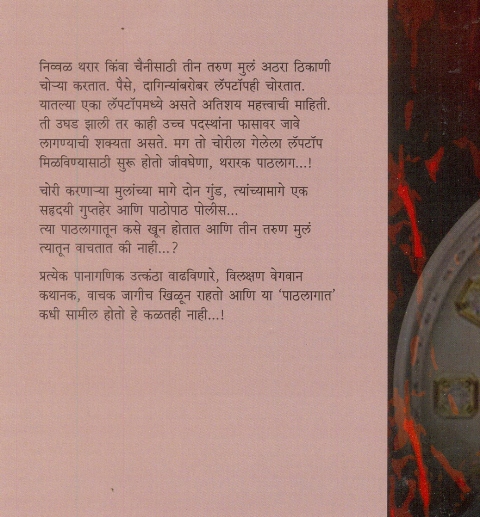 निव्वळ थरार किंवा चैनीसाठी तीन तरुण मुलं अठरा ठिकाणी
चोऱ्या करतात. पैसे, दागिन्यांबरोबर लॅपटॉपही चोरतात.
यातल्या एका लॅपटॉपमध्ये असते अतिशय महत्त्वाची माहिती.
ती उघड झाली तर काही उच्च पदस्थांना फासावर जावे
लागण्याची शक्यता असते. मग तो चोरीला गेलेला लॅपटॉप
मिळविण्यासाठी सुरू होतो जीवघेणा, थरारक पाठलाग...!
चोरी करणाऱ्या मुलांच्या मागे दोन गुंड, त्यांच्यामागे एक
सहृदयी गुप्तहेर आणि पाठोपाठ पोलीस...
त्या पाठलागातून कसे खून होतात आणि तीन तरुण मुलं
त्यातून वाचतात की नाही...?
प्रत्येक पानागणिक उत्कंठा वाढविणारे, विलक्षण वेगवान
कथानक, वाचक जागीच खिळून राहतो आणि या 'पाठलागात'
कधी सामील होतो हे कळतही नाही...!